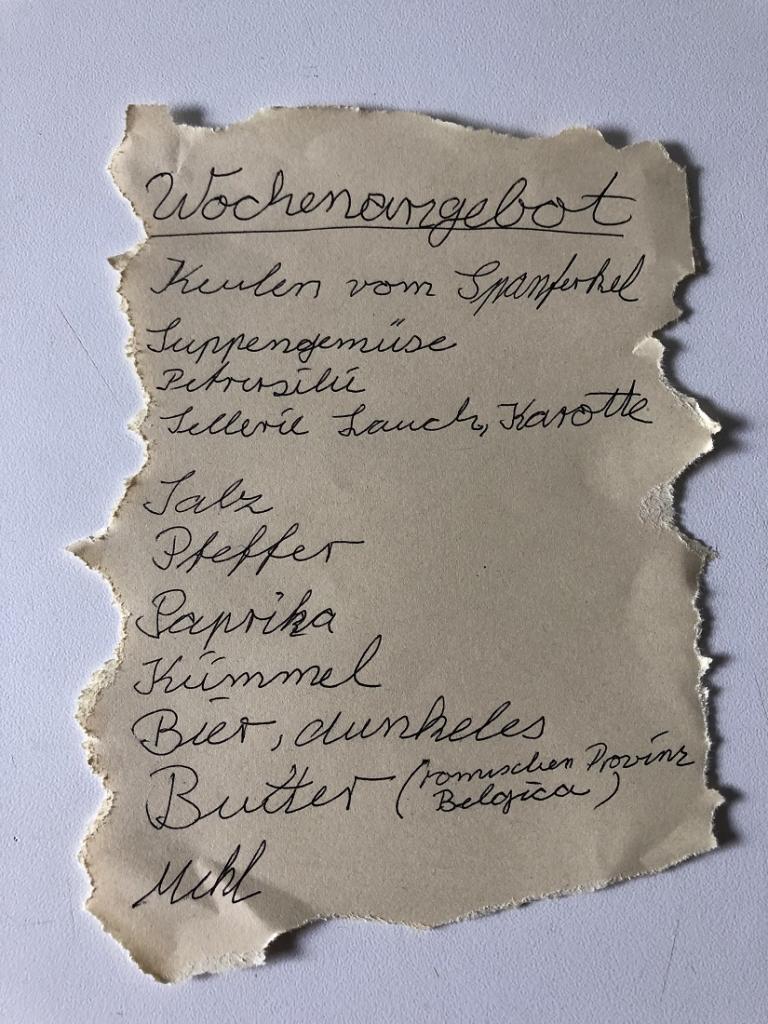 Wochenangebot
Keulen vom Spanferkel
Suppengemüse
Petersilie
Sellerie Lauch, Karotte
Salz
Pfeffer
Paprika
Kümmel
Bier, dunkeles
Butter (römischen Provinz
Belgica)
Mehl